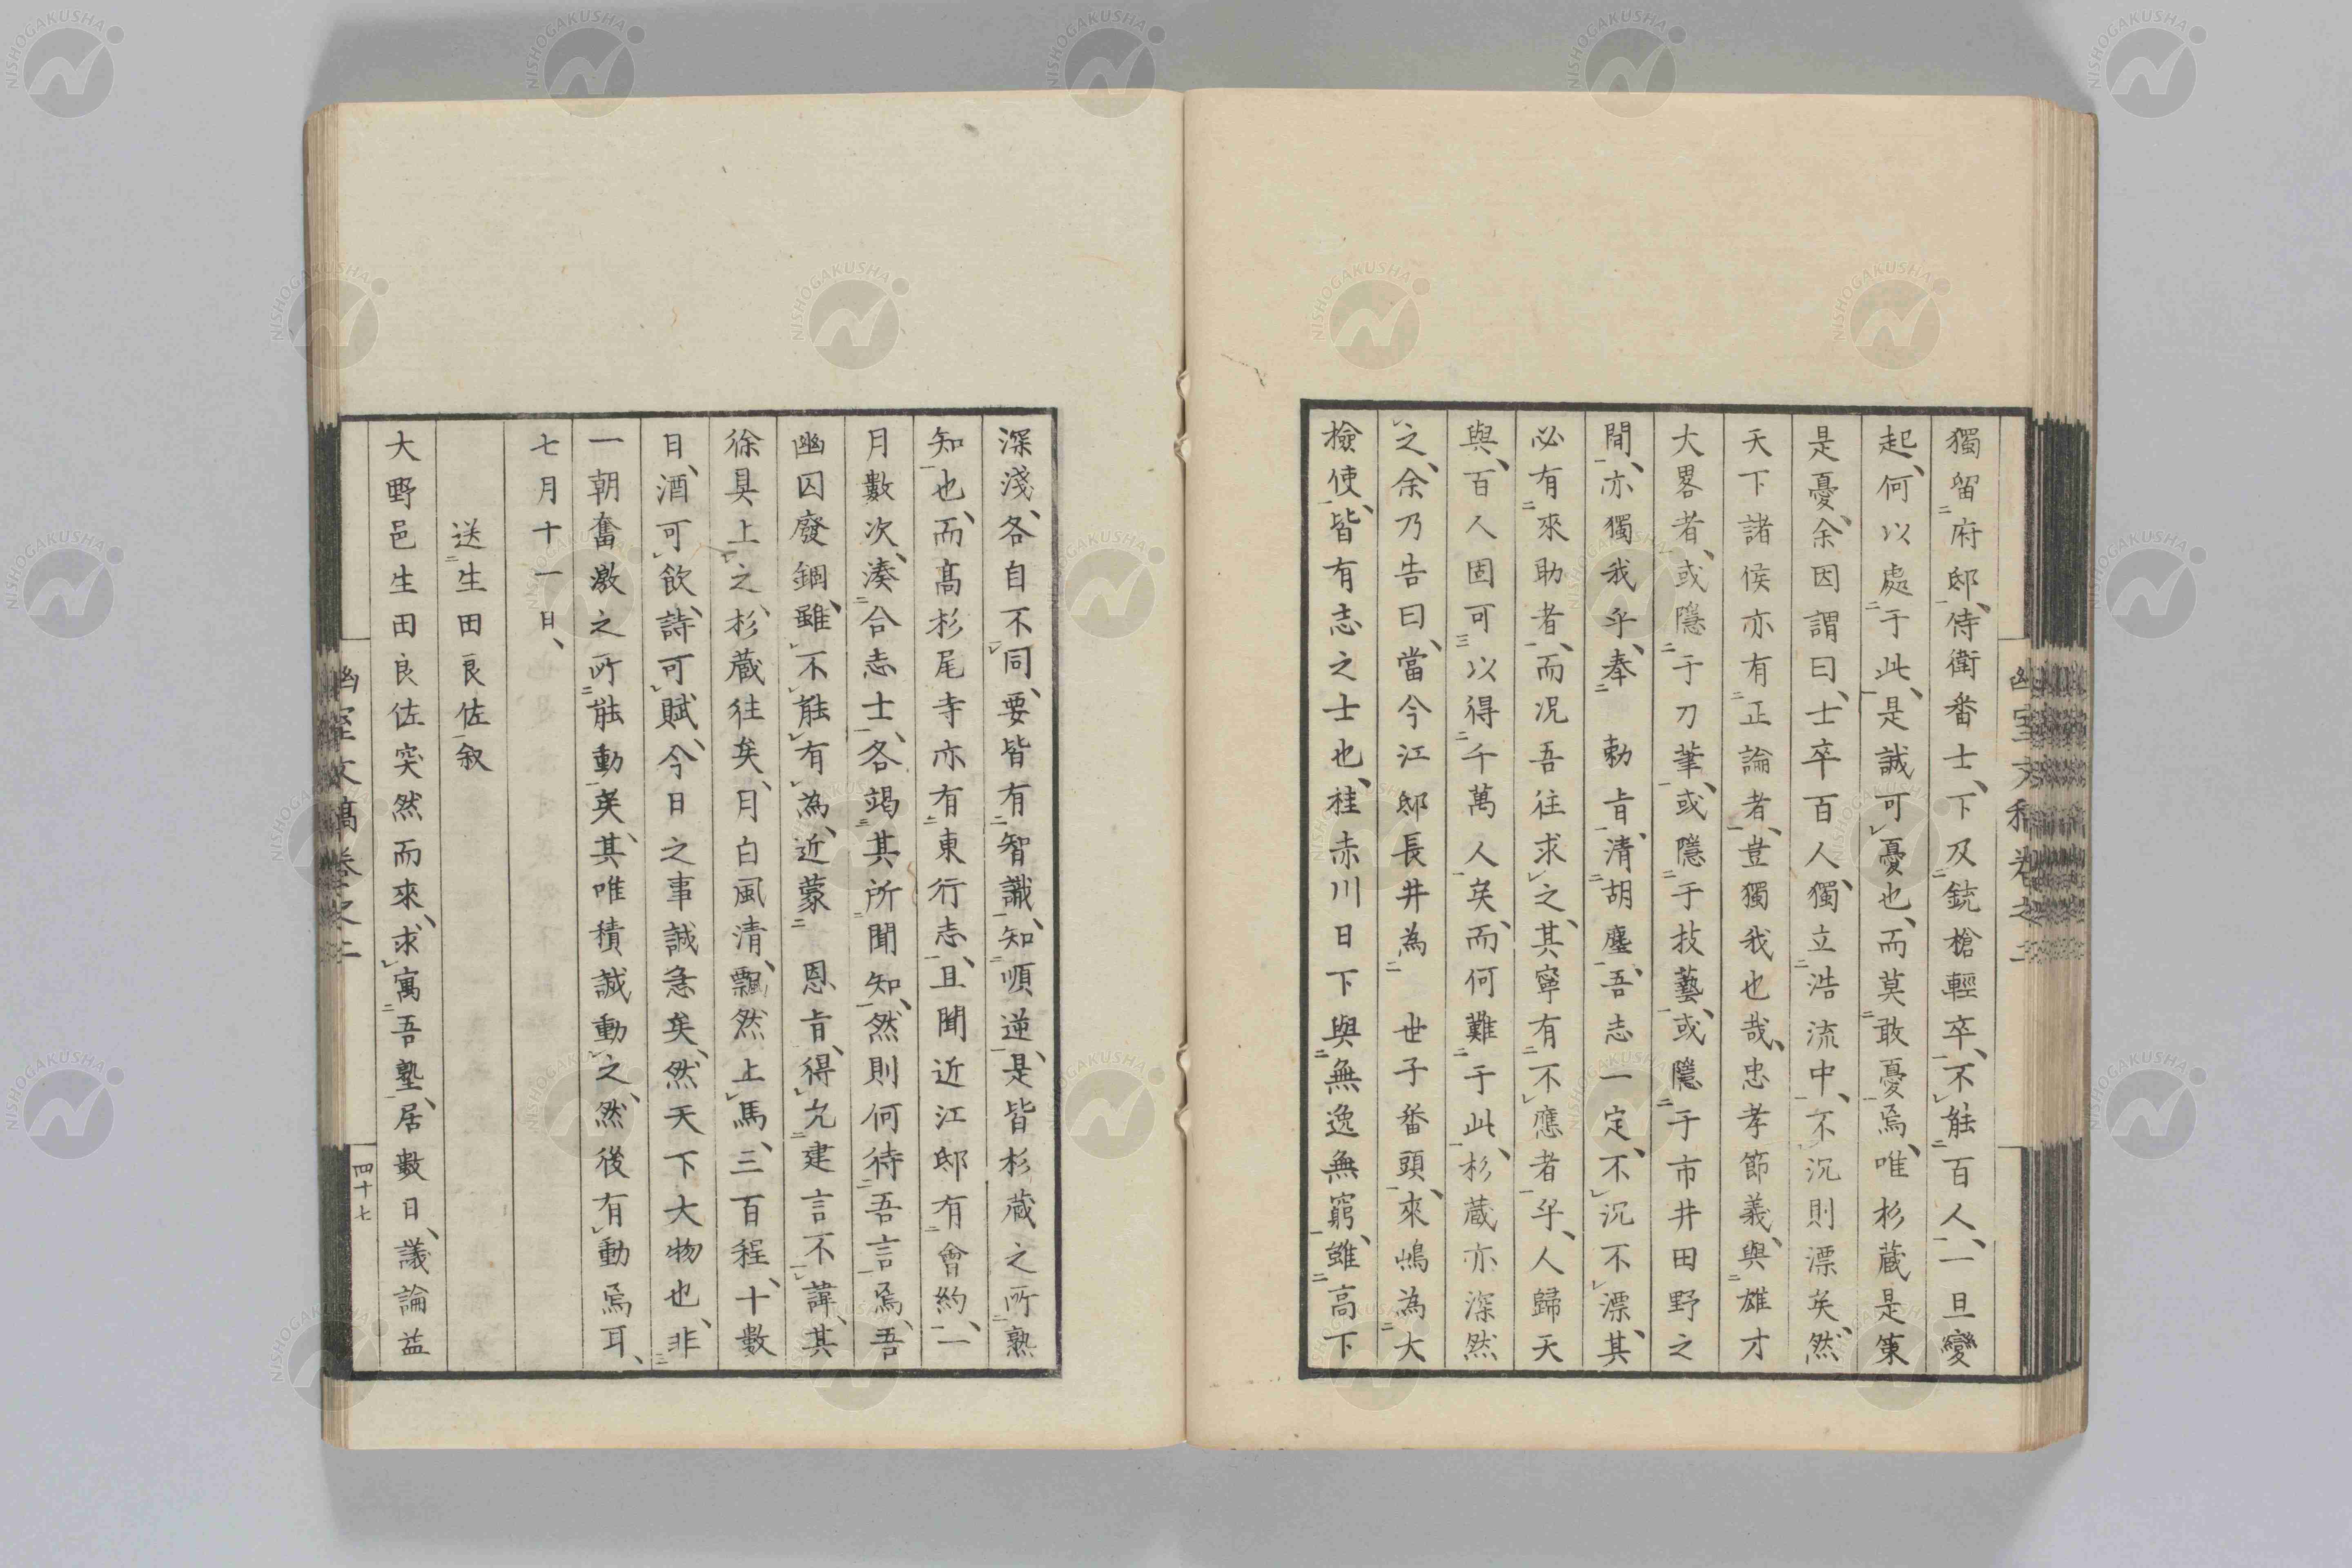 獨留府邸、侍衛畨士、下及銃槍輕卒、不能百人、一旦變
起、何以處于此、是誠可憂也、而莫敢憂焉、唯杉蔵是
是憂、余因謂曰、士卒百人、獨立浩流中、不沉則漂矣、然
天下諸侯亦有正論者、豈獨我也哉、忠孝節義、與雄才
大畧者、或隱于刀筆、或隱于技藝、或隱于市井田野之
間、亦獨我乎、奉 勅旨、清胡塵、吾志一定、不沉不漂、其
必有來助者、而况吾往求之、其寧有不應者乎、人歸天
與、百人固可以得千萬人矣、而何難于此、杉蔵亦深然
之、余乃告曰、當今江邸長井為 世子畨頭、來嶋為大
檢使、皆有志之士也、桂赤川日下與無逸無窮、雖高下
幽室文稿卷之二
深淺、各自不同、要皆有智識、知順逆、是皆杉蔵之所熟
知也、而髙杉尾寺亦有東行志、且聞近江邸有會約、一
月數次、湊合志士、各竭其所聞知、然則何待吾言焉、吾
幽囚廢錮、雖不能有為、近蒙 恩旨、得允建言不諱、其
徐具上之、杉蔵往矣、月白風清、飄然上馬、三百程、十數
日、酒可飲、詩可賦、今日之事誠急矣、然天下大物也、非
一朝奮激之所能動矣、其唯積誠動之、然後有動焉耳、
七月十一日、
送生田良佐叙
大野邑生田良佐突然而來、求寓吾塾、居數日、議論益
幽室文稿卷之二
四十七
NISHOGAKUSHA